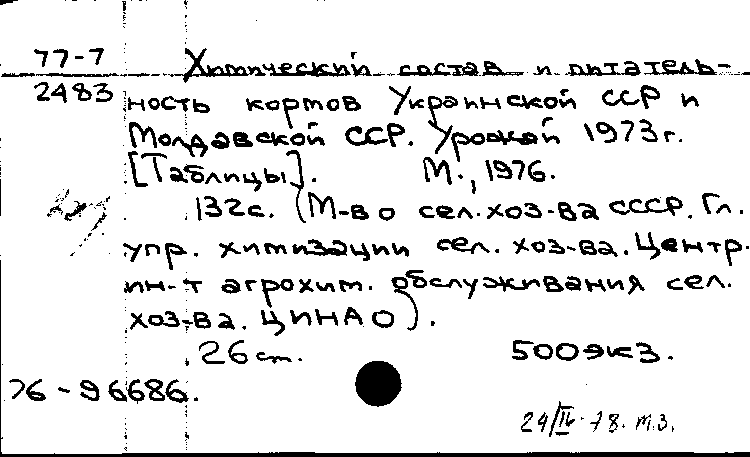 77-7 Химический состав и питатель-
2483 ность кормов Украинской ССР и
Молдавской ССР. Урожай 1973г.
[Таблицы]. М., 1976.
132с. (М-во сел.хоз-ва СССР. Гл.
упр. химизации сел. хоз-ва. Центр.
ин-т агрохим. обслуживания сел.
хоз-ва. ЦИНАО).
26см. 500экз.
76-96686.
24/IV-78. М.З.